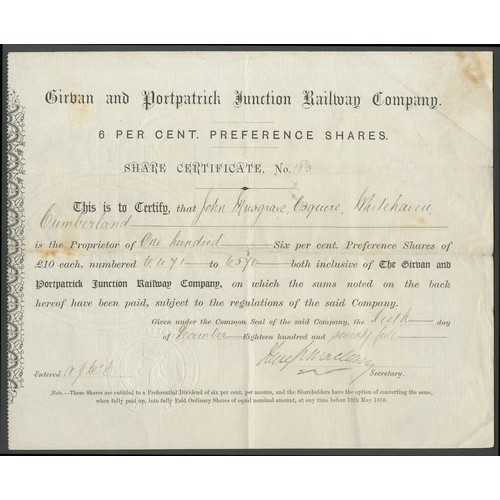 Girvan and Portpatrick Junction Railway Company.
6 PER CENT. PREFERENCE SHARES.
SHARE CERTIFICATE, No. 183
This is to Certify, that John Musgrave, Esquire, Whitehaven,
Cumberland
is the Proprietor of One hundred Six per cent. Preference Shares of
£10 each, numbered 6471 to 6570 both inclusive of The Girvan and
Portpatrick Junction Railway Company, on which the sums noted on the back
hereof have been paid, subject to the regulations of the said Company.
Given under the Common Seal of the said Company, the day
of December Eighteen hundred and seventy five
Entered Secretary.
Note.—These Shares are entitled to a Preferential Dividend of six per cent. per annum, and the Shareholders have the option of converting the same,
when fully paid up, into fully Paid Ordinary Shares of equal nominal amount, at any time before 15th May 1880.